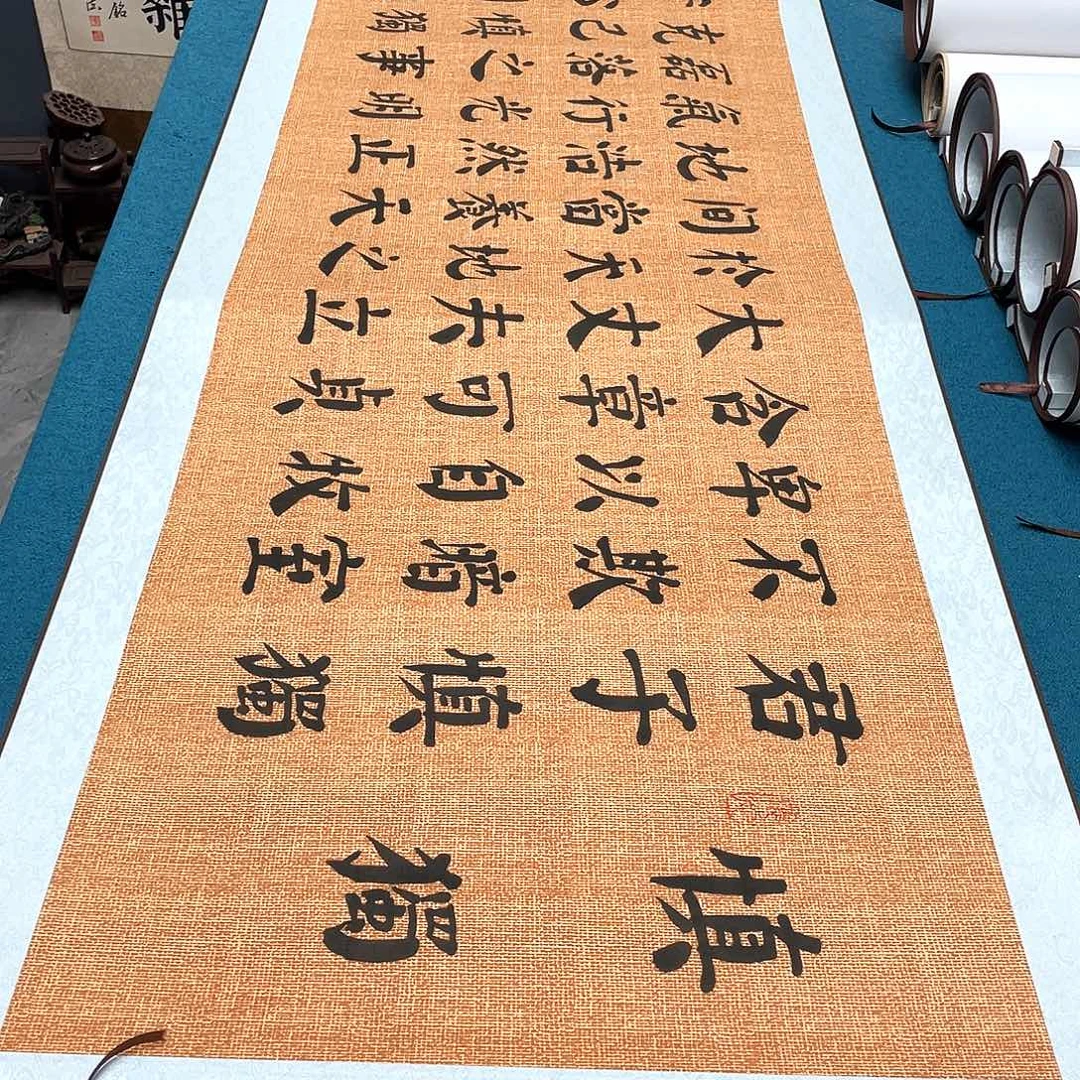 慎獨
君子慎獨
不欺暗室
卑以自牧
含章可貞
大丈夫立
於天地之
间當養天
地浩然正
氣行光明
磊落之事
克己慎獨